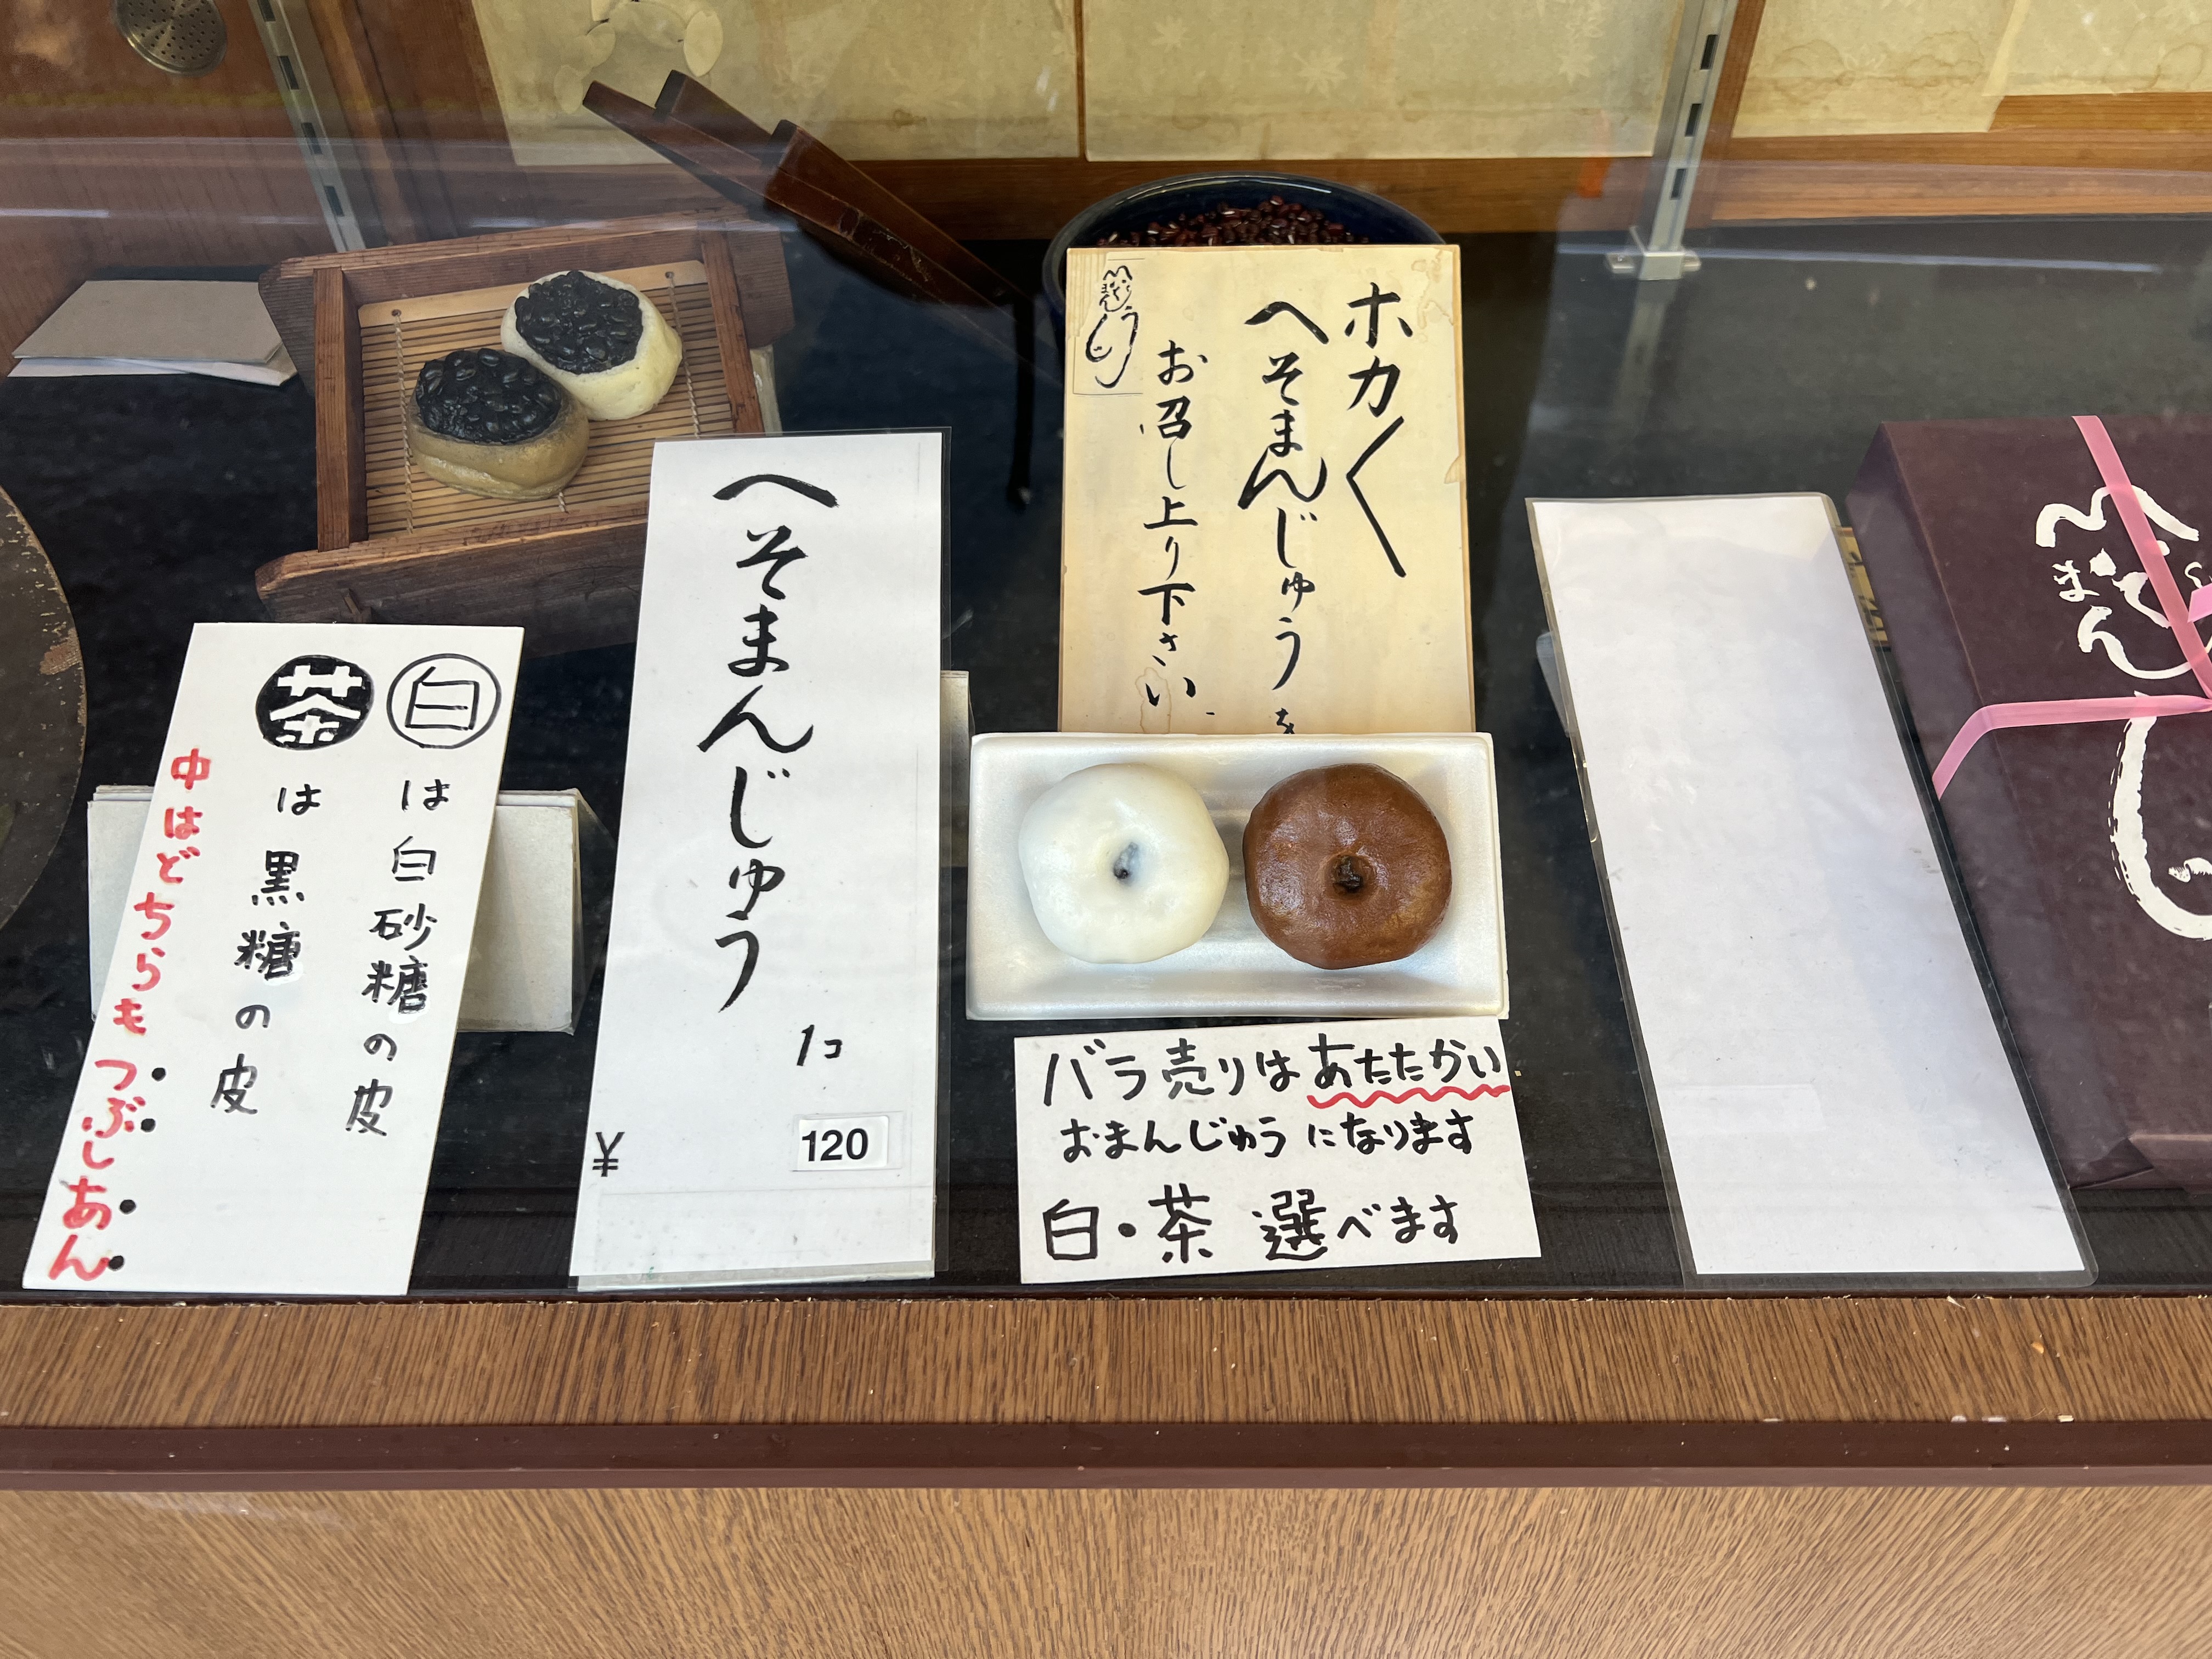 白は白砂糖の皮
茶は黒糖の皮
中はどちらもつぶしあん
へそまんじゅう
1コ
¥ 120
ホカ〱
へそまんじゅうを
お召し上り下さい
へそまんじう
バラ売りはあたたかい
おまんじゅうになります
白・茶 選べます
へそまんじう